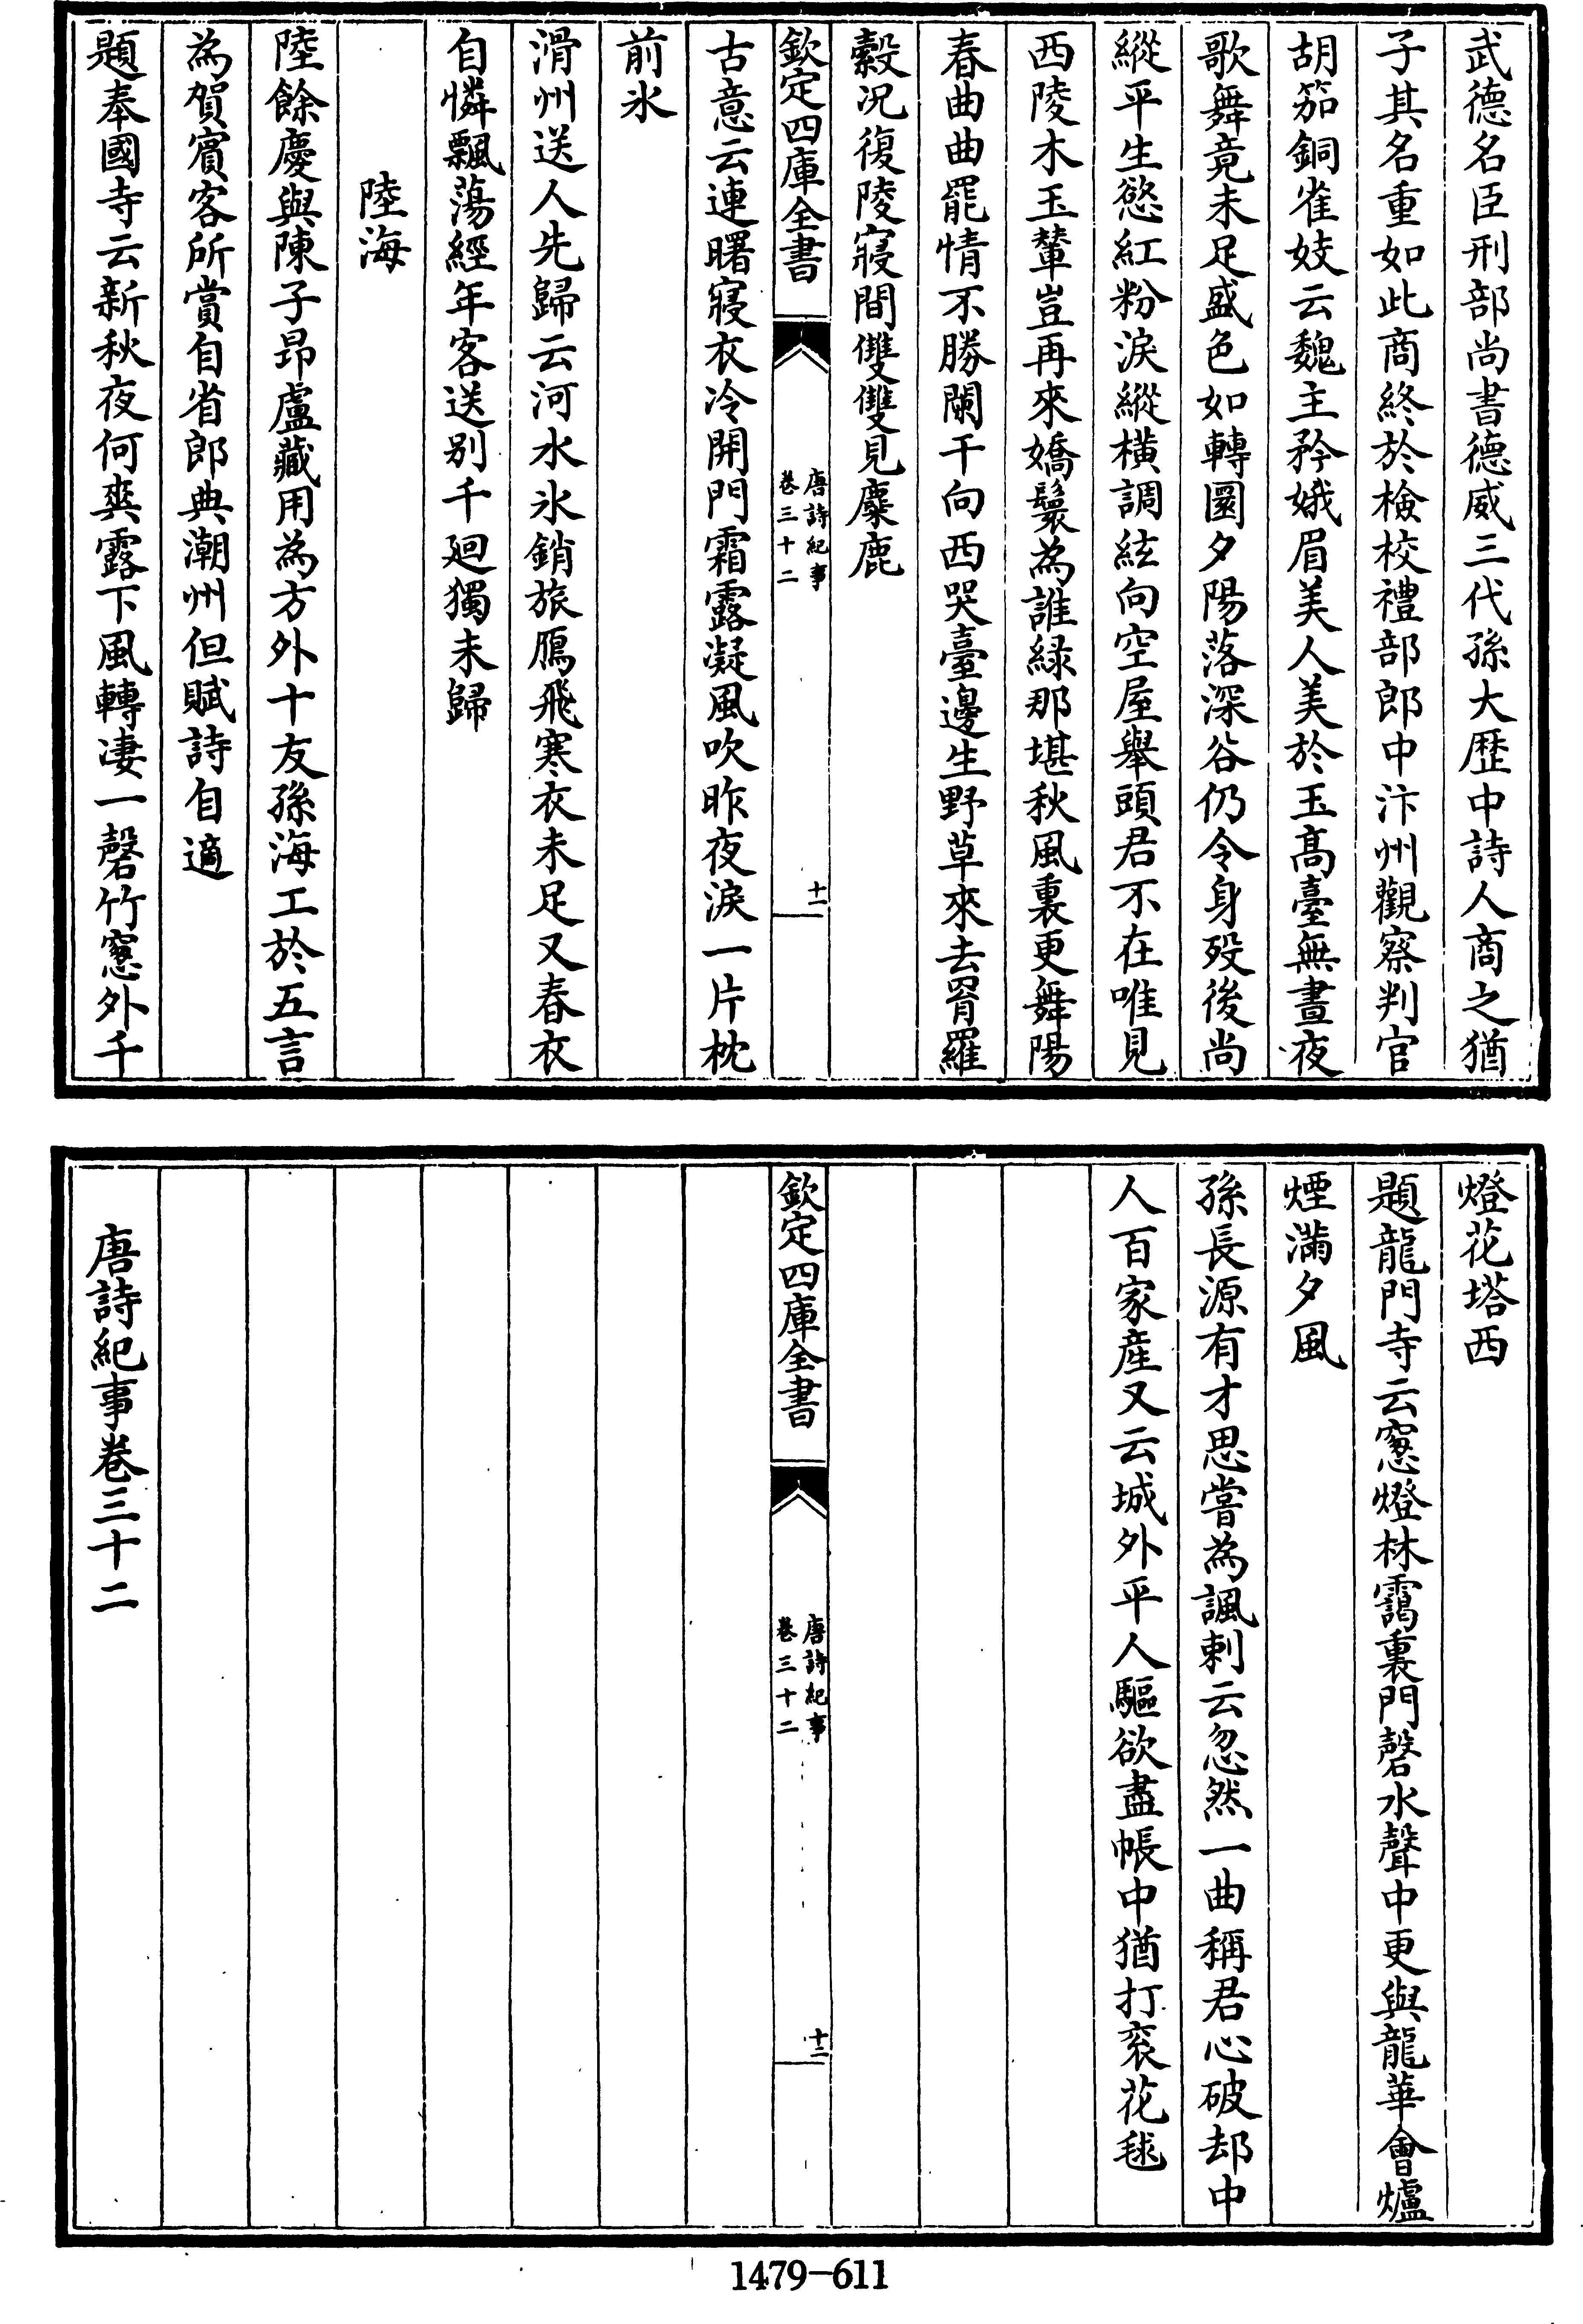 武德名臣刑部尚書德威三代孫大歷中詩人商之猶
子其名重如此商終於檢校禮部郎中汴州觀察判官
胡笳銅雀妓云魏主矜娥眉美人美於玉髙臺無晝夜
歌舞竟未足盛色如轉圜夕陽落深谷仍令身殁後尚
縱平生慾紅粉淚縱橫調絃向空屋舉頭君不在唯見
西陵木玉輦豈再來嬌鬟為誰緑那堪秋風裏更舞陽
春曲曲罷情不勝闌干向西哭臺邊生野草來去罥羅
縠况復陵寢間雙雙見麋鹿
欽定四庫全書
唐詩紀事
卷三十二
十一
古意云連曙寢衣冷開門霜露凝風吹昨夜淚一片枕
前氷
滑州送人先歸云河水氷銷旅鴈飛寒衣未足又春衣
自憐飄蕩經年客送别千廻獨未歸
陸海
陸餘慶與陳子昂盧藏用為方外十友孫海工於五言
為賀賓客所賞自省郎典潮州但賦詩自適
題奉國寺云新秋夜何爽露下風轉凄一磬竹窻外千
燈花塔西
題龍門寺云窻燈林靄裏門磬水聲中更與龍華會爐
煙滿夕風
孫長源有才思嘗為諷刺云忽然一曲稱君心破却中
人百家産又云城外平人驅欲盡帳中猶打衮花毬
欽定四庫全書
唐詩紀事
卷三十二
十二
唐詩紀事卷三十二
1479-611